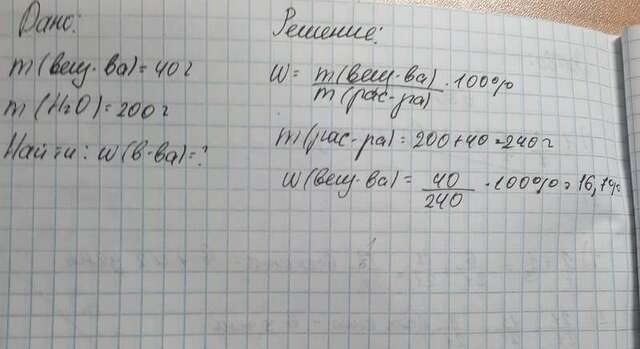 Дано:
m(вещ-ва)=40г
m(H₂O)=200г
Найти: w(в-ва)=?
Решение:
w= m(вещ-ва) / m(рас-ра) · 100%
m(рас-ра)=200+40=240г
w(вещ-ва)= 40 / 240 · 100%=16,7%